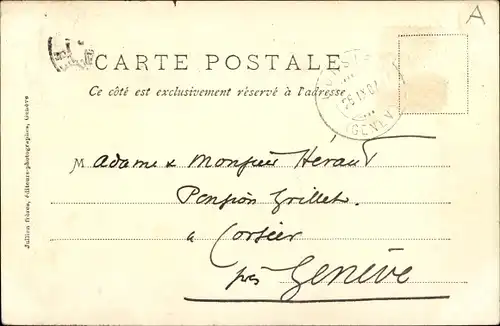 A
CARTE POSTALE
Ce côté est exclusivement réservé à l'adresse
(GENÈVE)
Madame & Monsieur Héraut
Pension Grillet.
à Corsier
près Genève
Jullien frères, éditeurs-photographes, Genève